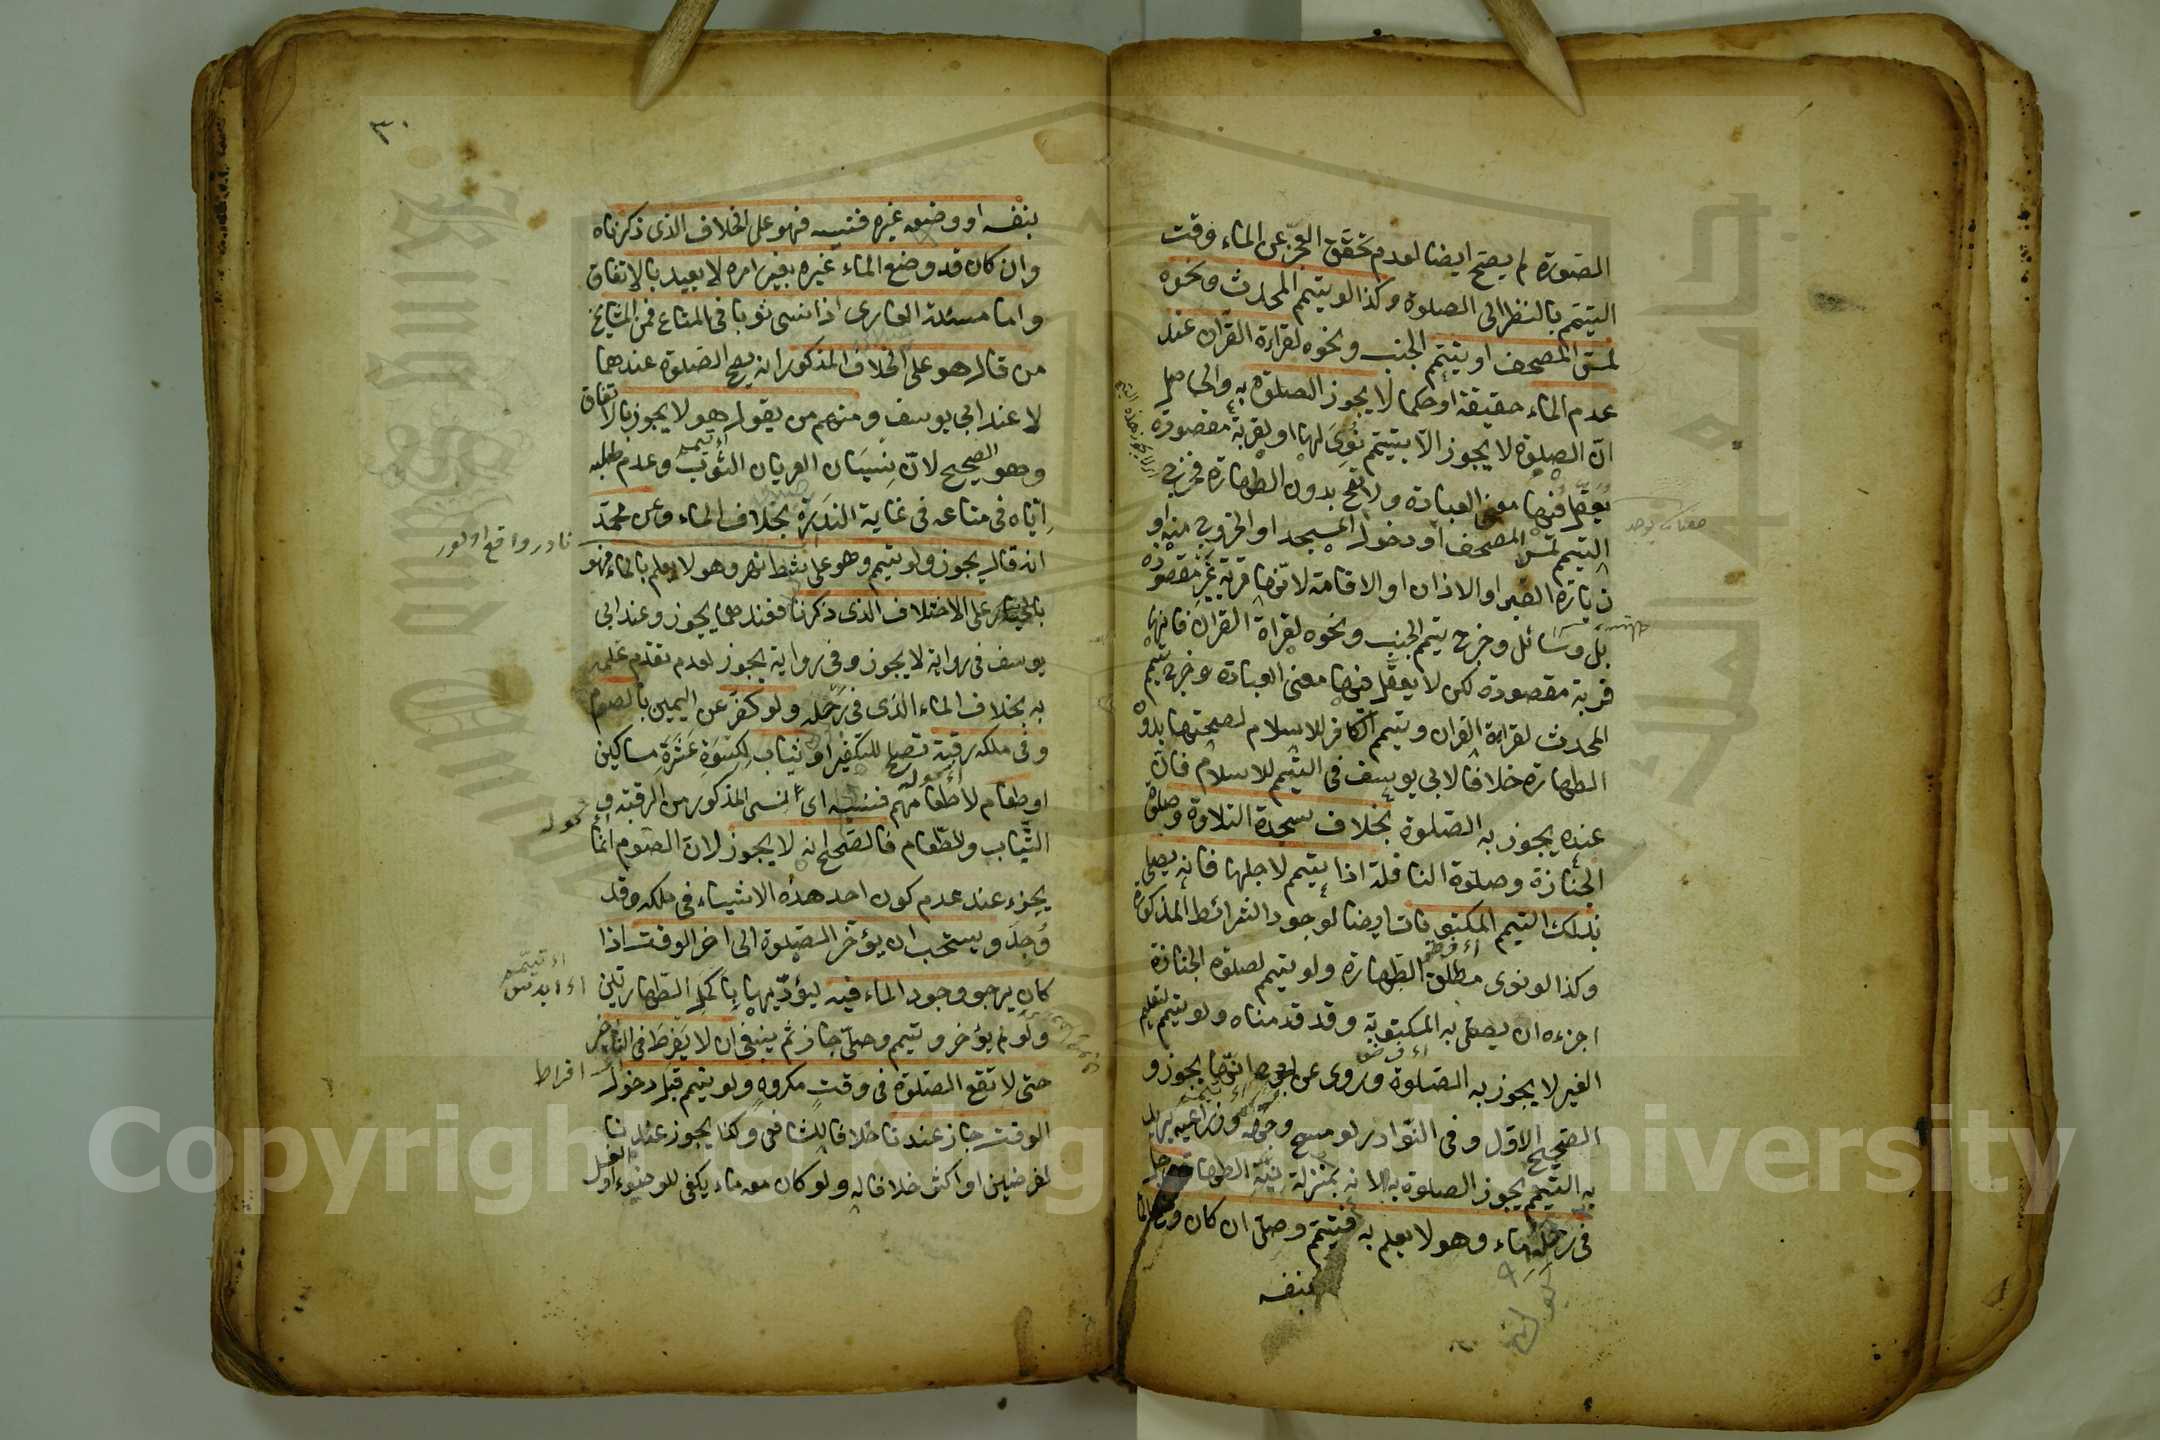 الصورة لم يصح ايضا لعدم تحقق العجز عن الماء وقت
التيمم بالنظر الى الصلوة وكذا لو تيمم المحدث ونحوه
لمس المصحف او تيمم الجنب ونحوه لقراءة القرآن عند
عدم الماء حقيقة او حكما لا يجوز الصلوة به والحاصل
انّ الصلوة لا يجوز الّا بتيمم نُوِىَ لها او لقربة مقصودة
يُعقل فيها معنى العبادة ولا تصح بدون الطهارة فخرج
التيمم لمس المصحف او دخول المسجد او الخروج منه او
زيارة القبر او الاذان او الاقامة لانّها قربة غير مقصودة
بل وسائل وخرج تيمم الجنب ونحوه لقراءة القران فانها
قربة مقصودة لكن لا يعقل فيها معنى العبادة وخرج تيمم
المحدث لقراءة القران وتيمم الكافر للاسلام لصحتها بدون
الطهارة خلافا لابي يوسف في التيمم للاسلام فانّ
عنده يجوز به الصلوة بخلاف سجدة التلاوة وصلوة
الجنازة وصلوة النافلة اذا تيمم لاجلها فانه يصلى
بذلك التيمم المكتوبات ايضا لوجود الشرائط المذكورة
وكذا لو نوى مطلق الطهارة ولو تيمم لصلوة الجنازة
اجزءه ان يصلى به المكتوبة وقد قدمناه ولو تيمم لتعليم
الغير لا يجوز به الصلوة وروى عن ابي ح انّها يجوز و
الصحيح الاول وفي النوادر لو مسح وجهه وذراعيه يريد
به التيمم يجوز الصلوة به لانه بمنزلة نيّة الطهارة رجل
فى رحله ماء وهو لا يعلم به فتيمم وصلى ان كان وضع الماء
بنفسه
٣٠
بنفسه او وضعه غيره فنسيه فهو على الخلاف الذى ذكرناه
وان كان قد وضع الماء غيره بغير امره لا يعيد بالاتفاق
واما مسئلة العارى اذا نسى ثوبا في المتاع فمن المشايخ
من قال هو على الخلاف المذكور انه يصح الصلوة عندهما
لا عند ابي يوسف ومنهم من يقول هو لا يجوز بالاتفاق
وهو الصحيح لانّ نِسيَان العريان الثوب وعدم طلبه
اِيّاه في متاعه في غاية الندرة بخلاف الماء وعن محمّد
انه قال يجوز ولو تيمم وهو على شط نهر وهو لا يعلم بالماء فهو
على الاختلاف الذى ذكرنا فعندهما يجوز وعند ابى
يوسف في رواية لا يجوز وفي رواية يجوز لعدم تقدّم علمه
به بخلاف الماء الذى فى رَحْله ولو كفّر عن اليمين بالصوم
وفى ملكه رقبة تصلح للتكفير او ثياب لِكِسْوَةِ عَشَرَةِ مساكين
او طعام لاطعامهم فنسيه اى المنسى المذكور من الرقبة و
الثّياب والطّعام فالصّحيح انه لا يجوز لان الصوم انّما
يجزء عند عدم كون احد هذه الاشياء في ملكه وقد
وُجِدَ ويستحب ان يؤخر الصلوة الى اخر الوقت اذا
كان يرجو وجود الماء فيه ليؤدّيها باكمل الطهارتين
ولو لم يؤخر وتيمم وصلّى جاز ثم ينبغى ان لا يفرط فى التأخير
حتى لا تقع الصلوة فى وقتٍ مكروهٍ ولو تيمم قبل دخول
الوقت جاز عندنا خلافا للشافعى وكذا يجوز عندنا
لفرضين او اكثر خلافا له ولو كان معه ماء يكفى للوضوء او
نادر واقع اولور
افراط